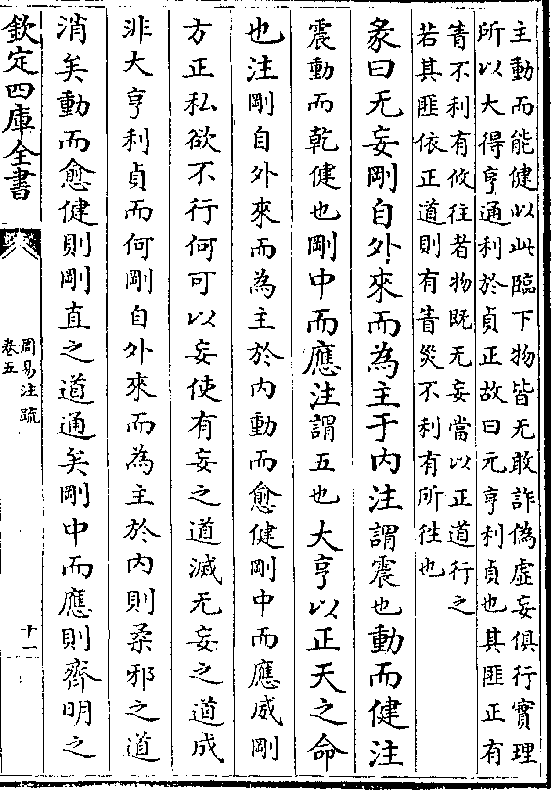 主動而能健以此臨下物皆无敢詐偽虛妄俱行實理
所以大得亨通利於貞正故曰元亨利貞也其匪正有
眚不利有攸往者物既无妄當以正道行之
若其匪依正道則有眚災不利有所往也
彖曰无妄剛自外來而為主于內注謂震也動而健注
震動而乾健也剛中而應注謂五也大亨以正天之命
也注剛自外來而為主於內動而愈健剛中而應威剛
方正私欲不行何可以妄使有妄之道滅无妄之道成
非大亨利貞而何剛自外來而為主於內則柔邪之道
消矣動而愈健則剛直之道通矣剛中而應則齊明之
欽定四庫全書
周易注疏
卷五
十一